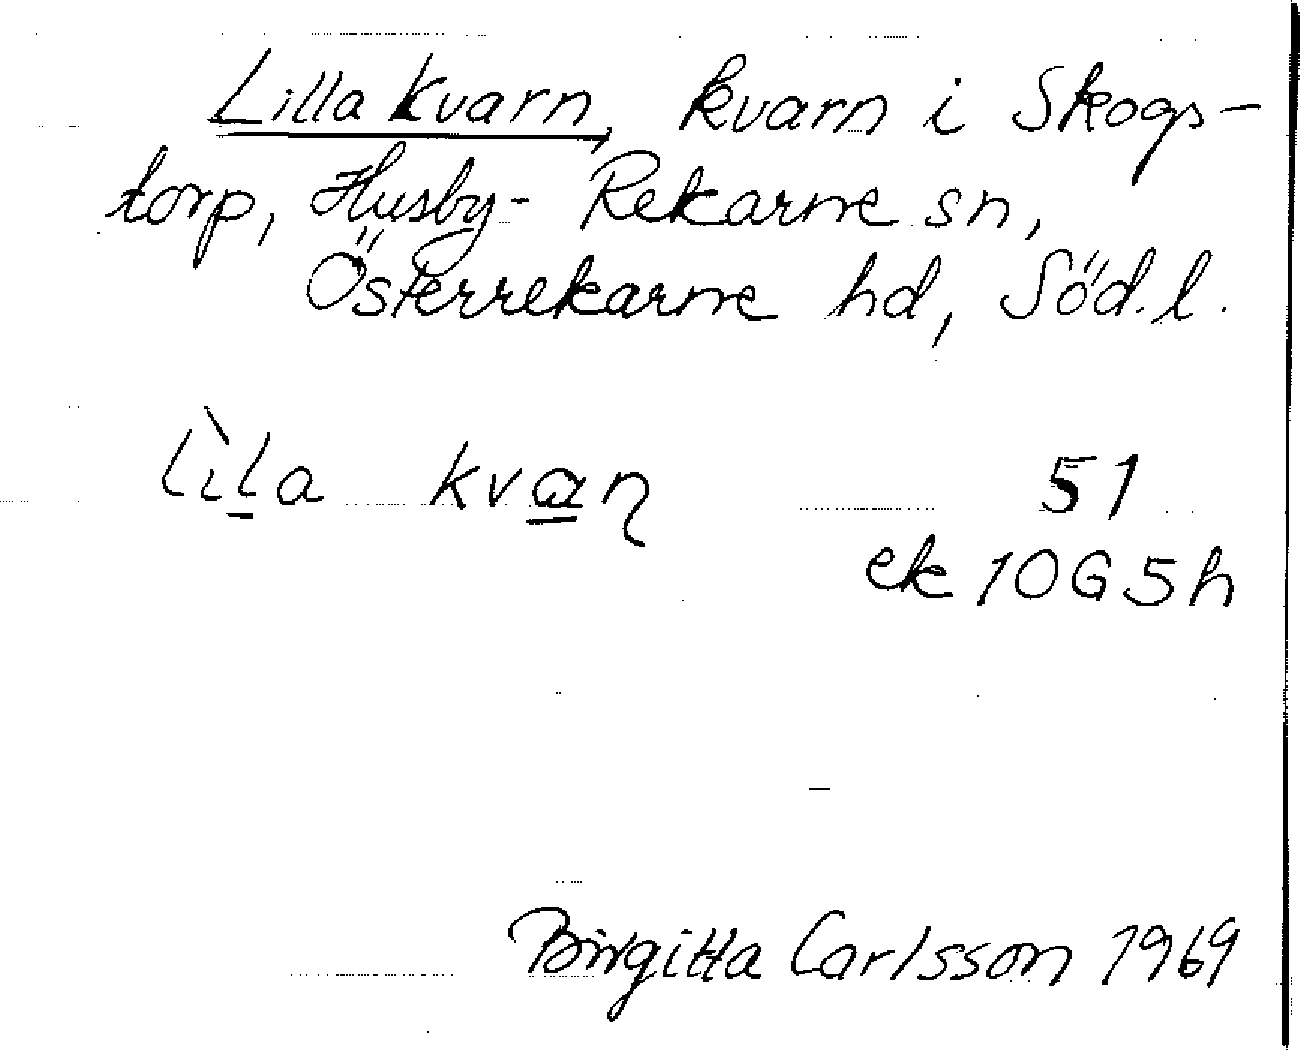 Lilla kvarn, kvarn i Skogs-
torp, Husby-Rekarne sn,
Österrekarne hd, Söd. l.
lìl̲a kvɑ̲ɳ 51
ek 10G5h
Birgitta Carlsson 1969